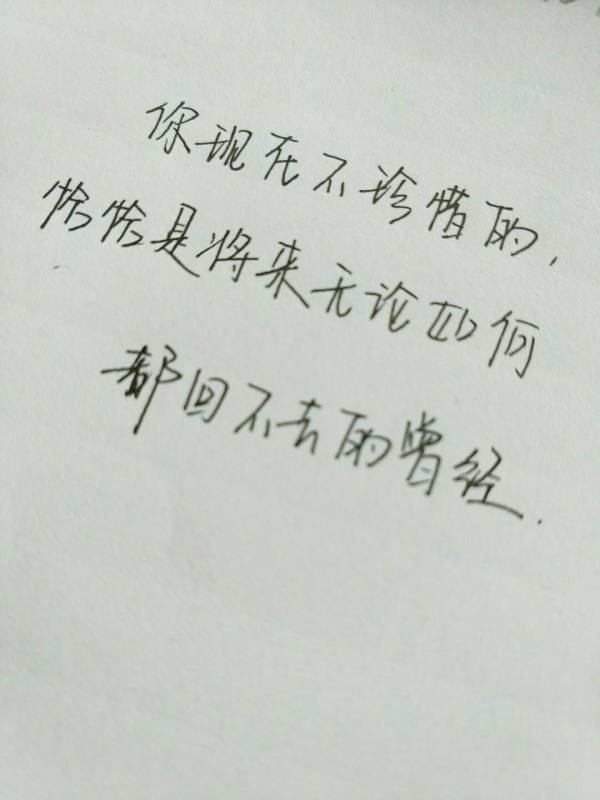 你现在不珍惜的,
恰恰是将来无论如何
都回不去的曾经.